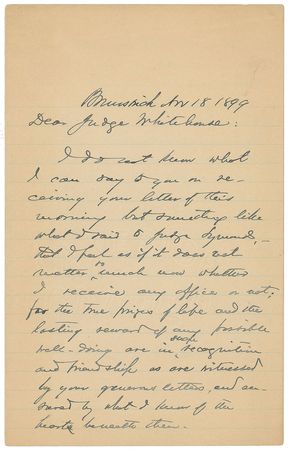 Brunswick Nov 18 1899
Dear Judge Whitehouse:
I do not know what
I can say to you on re-
ceiving your letter of this
morning but something like
what I said to Judge Symonds,
that I feel as if it does not
matter so much now whether
I receive any office or not;
for the true prizes of life and the
lasting reward of any possible
well-doing are in such recognition
and friendship as are witnessed
by your generous letters, and an-
swered by what I know of the
hearts beneath them.